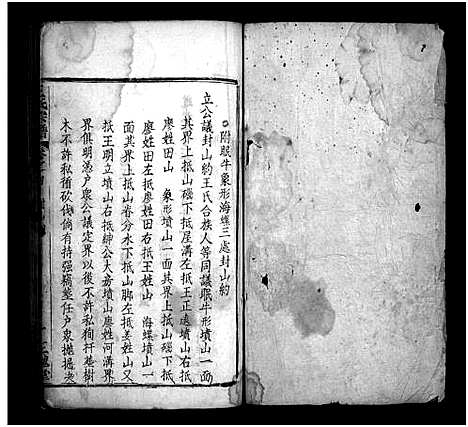 附眠牛象形海螺三處封山約
立公議封山約王氏合族人等同議眠牛形墳山一面
其界上抵山磡下抵屋溝左抵王正遠墳山右抵
廖姓田山 象形墳山一面其界上抵山磡下抵
廖姓田左抵廖姓田右抵王姓山 海螺墳山一
面其界上抵山脊分水下抵山脚左抵姜姓山又
抵王明立墳山右抵緯公大房墳山廖姓河溝界
界俱明憑户衆公議定界以後不許私徇扦塟樹
木不許私徇砍伐倘有持强竊塟任户衆掘